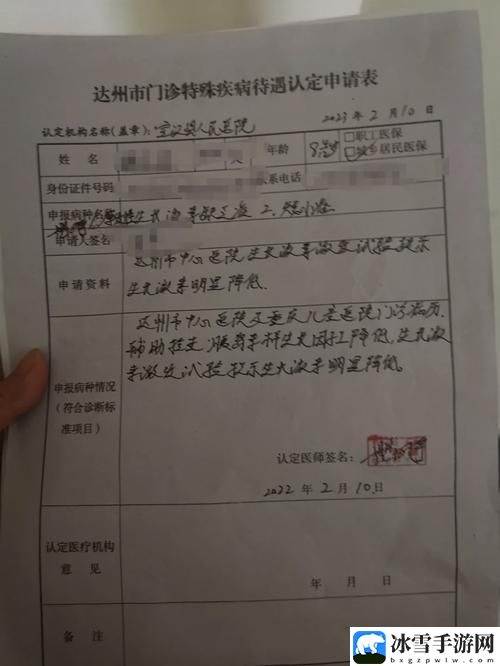 达州市门诊特殊疾病待遇认定申请表
认定机构名称(盖章): 宣汉县人民医院 2023 年 2 月 10 日
姓 名 年龄 8岁 □职工医保
□城乡居民医保
身份证件号码 系电话
申报病种名称 生长激素缺乏症 2.
申请人签名
申请资料 达州市中心医院生长激素激发试验提示
生长激素明显降低.
申报病种情况
(符合诊断标
准项目)
达州市中心医院及重庆儿童医院门诊病历.
辅助检查:胰岛素样生长因子降低,生长激
素激发试验提示生长激素明显降低.
认定医师签名:
2022 年 2 月 10 日
认定医疗机构
意 见
年 月 日
备 注
冰雪手游网
bxgzpwlw.com